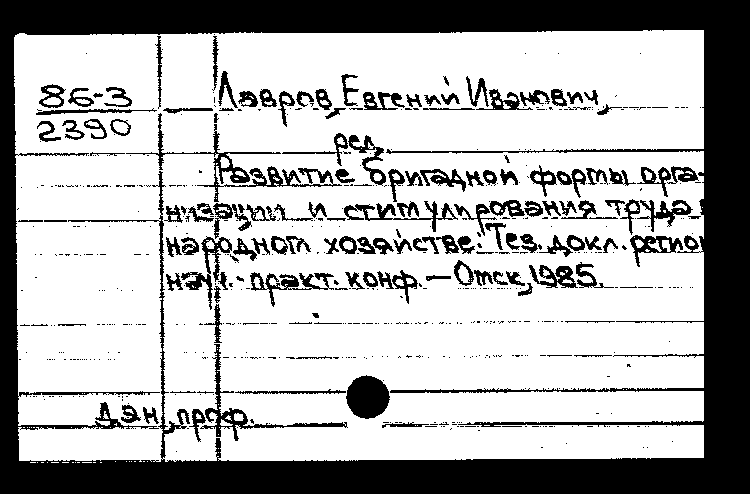 86-3
2390
Лавров, Евгений Иванович,
ред.
Развитие бригадной формы орга-
низации и стимулирования труда в
народном хозяйстве: Тез. докл. регион
науч.-практ. конф. — Омск, 1985.
Д.э.н., проф.